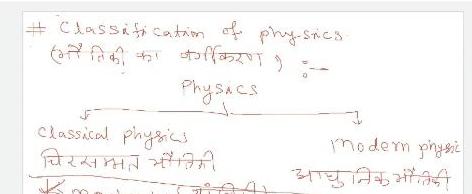 # Classification of physics
(भौतिकी का वर्गीकरण) :-
Physics
Classical physics
चिरसम्मत भौतिकी
modern physic
आधुनिक भौतिकी